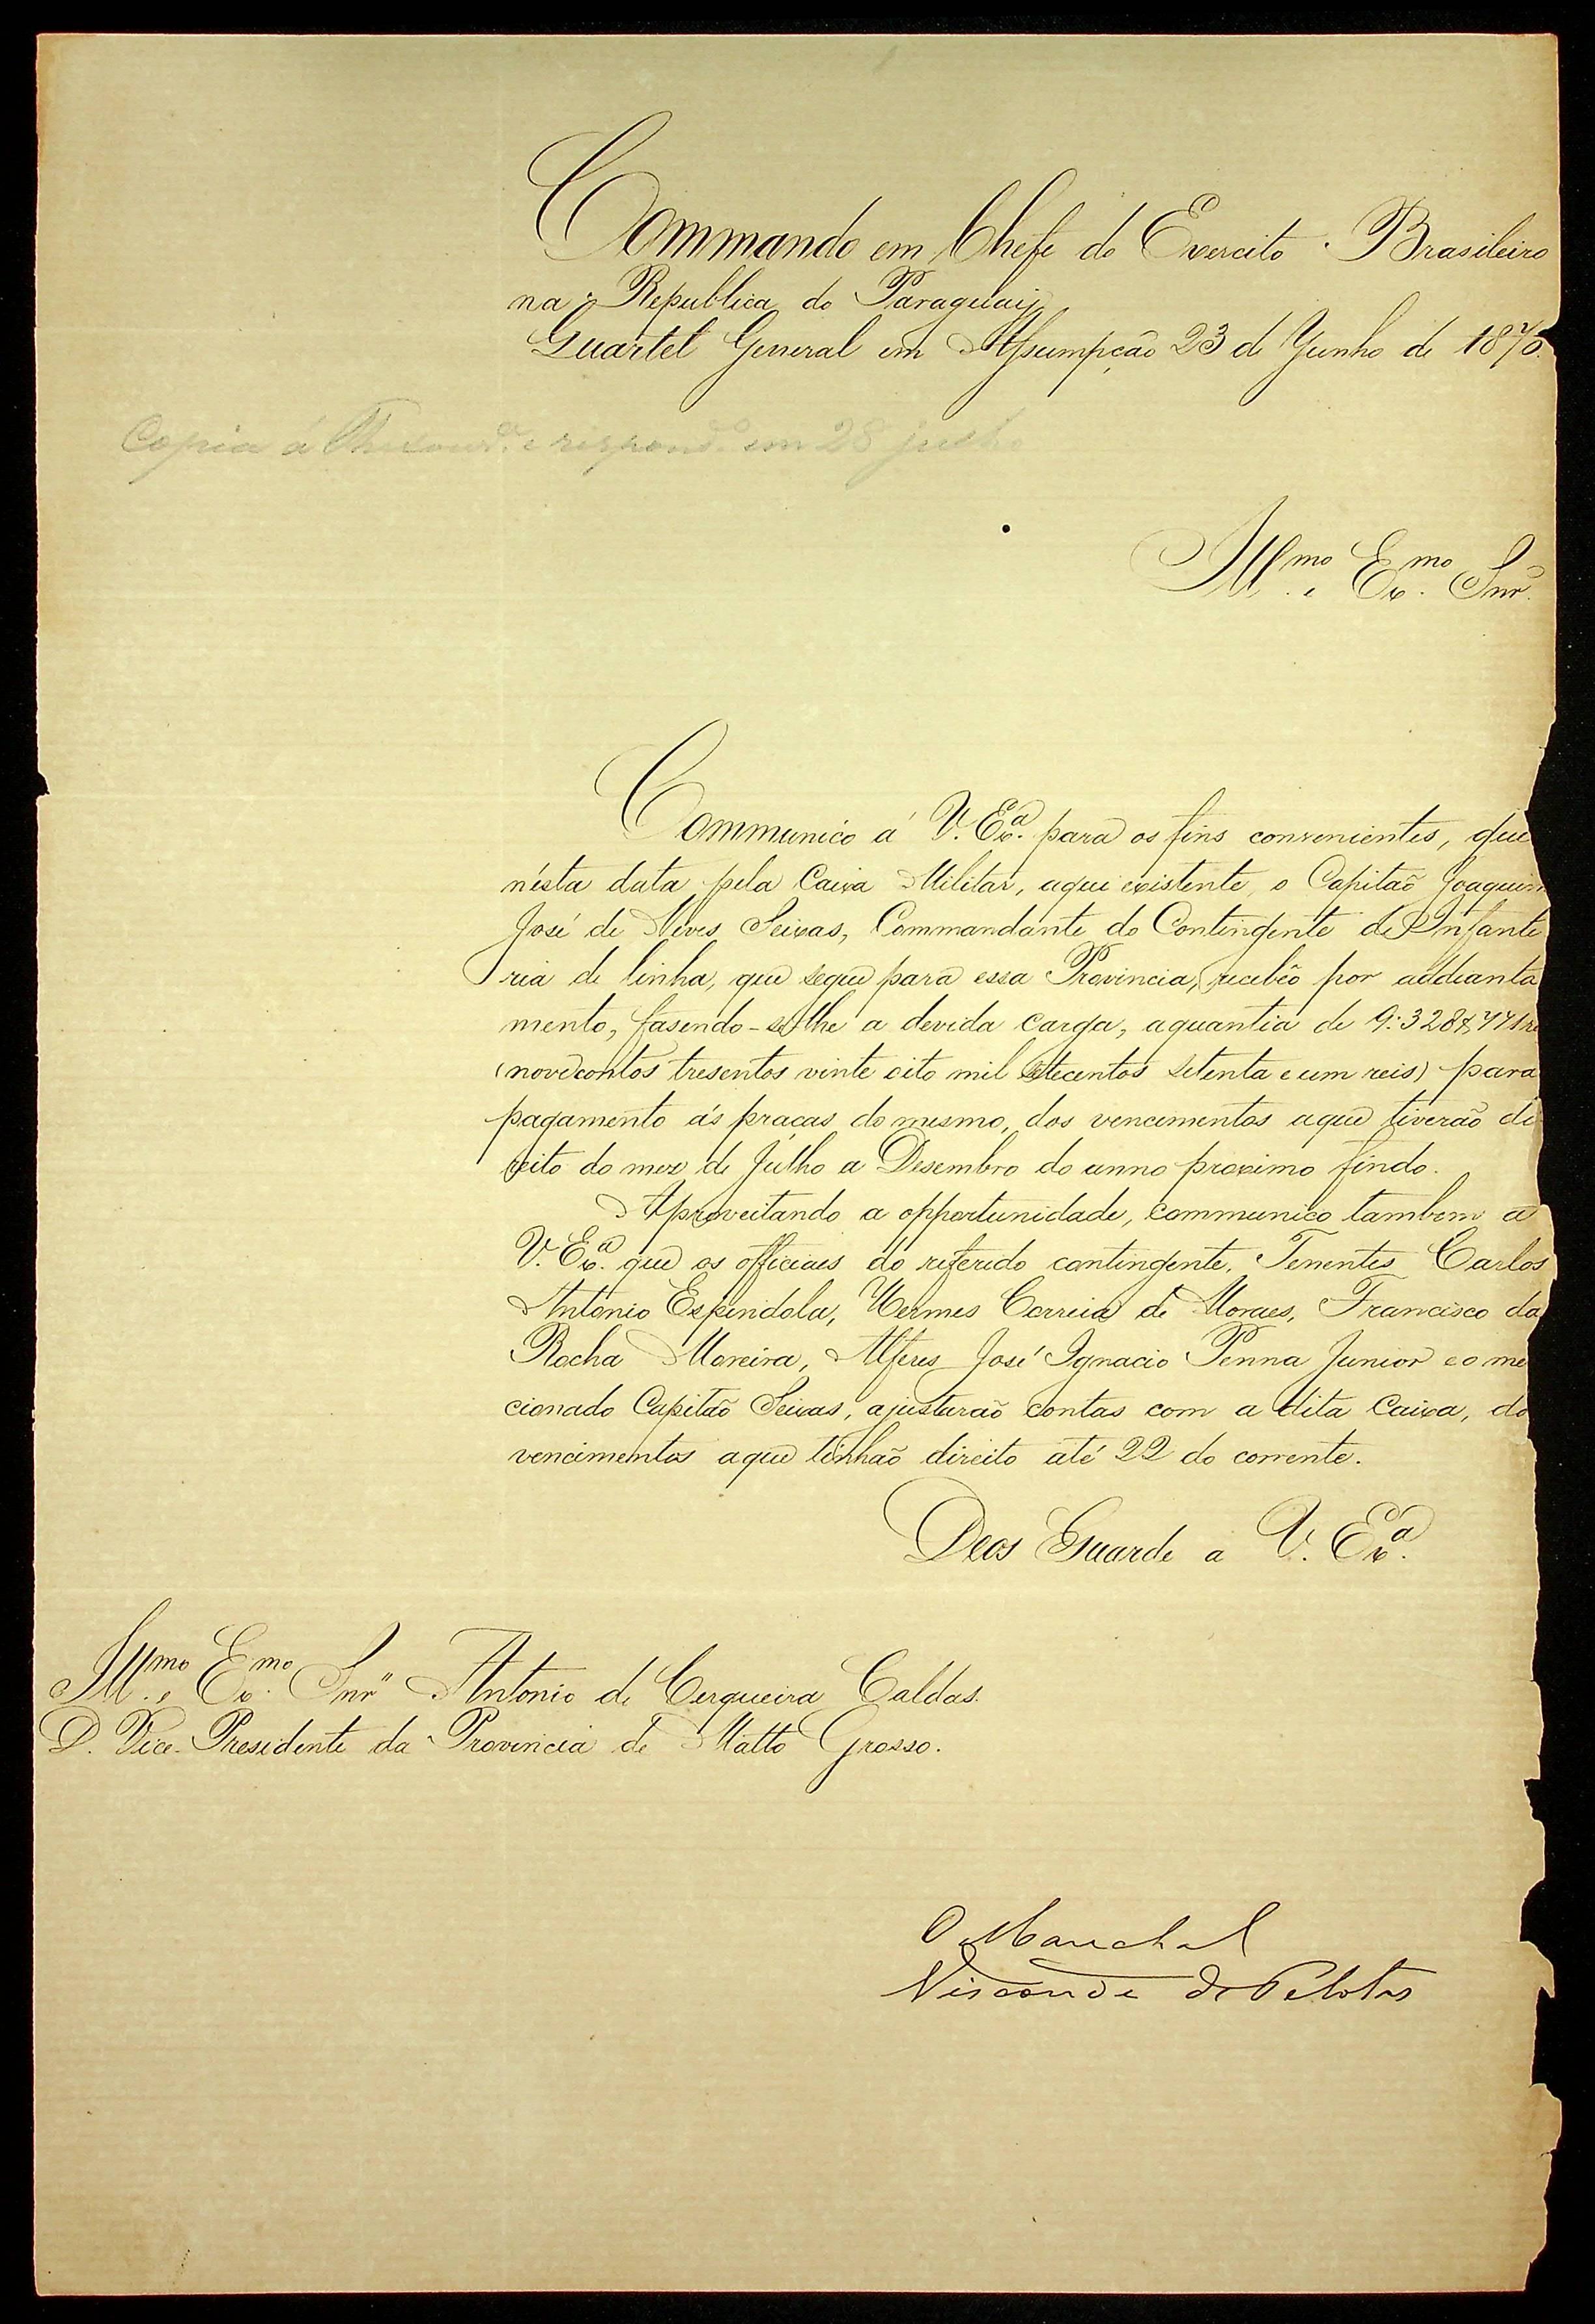 Commando em Chefe do Exercito Brasileiro
na Republica do Paraguay
Quartel General em Assumpção 23 de Junho de 1870.
Copia á Thesour.ª e respond.º em 28 julho
Ill.mo e Ex.mo Snr.
Communico á V. Ex.ª para os fins convenientes, que
nésta data pela Caixa Militar, aqui existente, o Capitaõ Joaquim
José de Neves Seixas, Commandante do Contingente de Infante
ria de linha, que segue para essa Provincia, recebêo por addianta
mento, fasendo-se-lhe a devida carga, aquantia de 9:328$771 re
(nove contos tresentos vinte oito mil setecentos setenta e um reis) para
pagamento ás praças do mesmo, dos vencimentos aque tiverão di
reito do mez de Julho a Desembro do anno proximo findo.
Aproveitando a opportunidade, communico tambem a
V. Ex.ª que os officiaes do referido contingente, Tenentes Carlos
Antonio Espindola, Hermes Correia de Moraes, Francisco da
Rocha Moreira, Alferes José Ignacio Penna Junior e o me
cionado Capitaõ Seixas, ajustaraõ contas com a dita Caixa, do
vencimentos aque tinhaõ direito até 22 do corrente.
Deos Guarde a V. Ex.ª
Ill.mo e Ex.mo Snr" Antonio de Cerqueira Caldas.
D. Vice-Presidente da Provincia de Matto Grosso.
O Marechal
Visconde de Pelotas